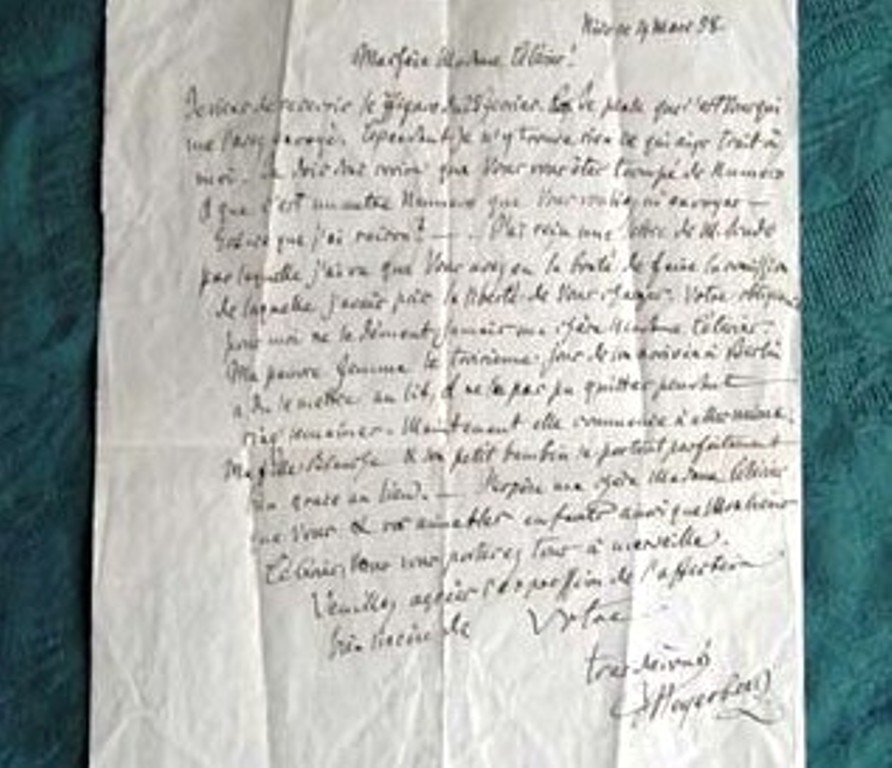 Nice ce 4 Mars 58.
Ma chère Madame !
Je viens de recevoir le Figaro du 25 fevrier. Je pense que c'est Vous qui
me l'avez envoyé. Cependant je n'y trouve rien ce qui aye trait à
moi. Je dois donc croire que Vous vous êtes trompé de Numero
& que c'est un autre Numero que Vous vouliez m'envoyer —
Est-ce que j'ai raison? — J'ai une lettre de M.
par laquelle j'ai vu que Vous avez eu la bonté de faire la commission
de laquelle j'avais pris la liberté de Vous charger. Votre
pour moi ne se dément jamais ma chère Madame
Ma pauvre femme le troisième jour de son arrivée à Berlin
a du se mettre au lit, & ne l'a pas pu quitter pendant
cinq semaines. Maintenant elle commence à aller mieux.
Ma fille & son petit bambin se portent parfaitement
bien grace au — J'espère ma chère Madame
que Vous & vos aimables enfants ainsi que Monsieur
Vous vous portez tous à merveille.
Veuillez agréer l'expression de l'affection
bien sincère de Votre
tres devoué
Meyerbeer